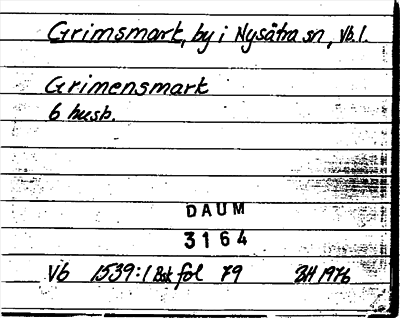 Grimsmark, by i Nysätra sn, Vb.l.
Grimensmark
6 husb.
DAUM
3164
Vb 1539:1 Bsk fol 79 BH 1976